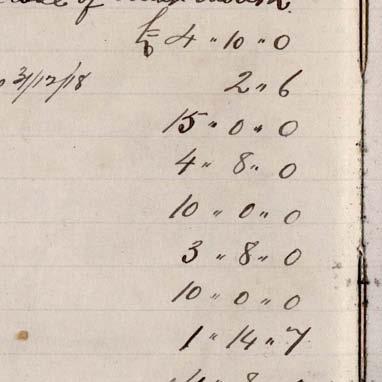 of
£ 4 " 10 " 0
3/12/18 2 " 6
15 " 0 " 0
4 " 8 " 0
10 " 0 " 0
3 " 8 " 0
10 " 0 " 0
1 " 14 " 7